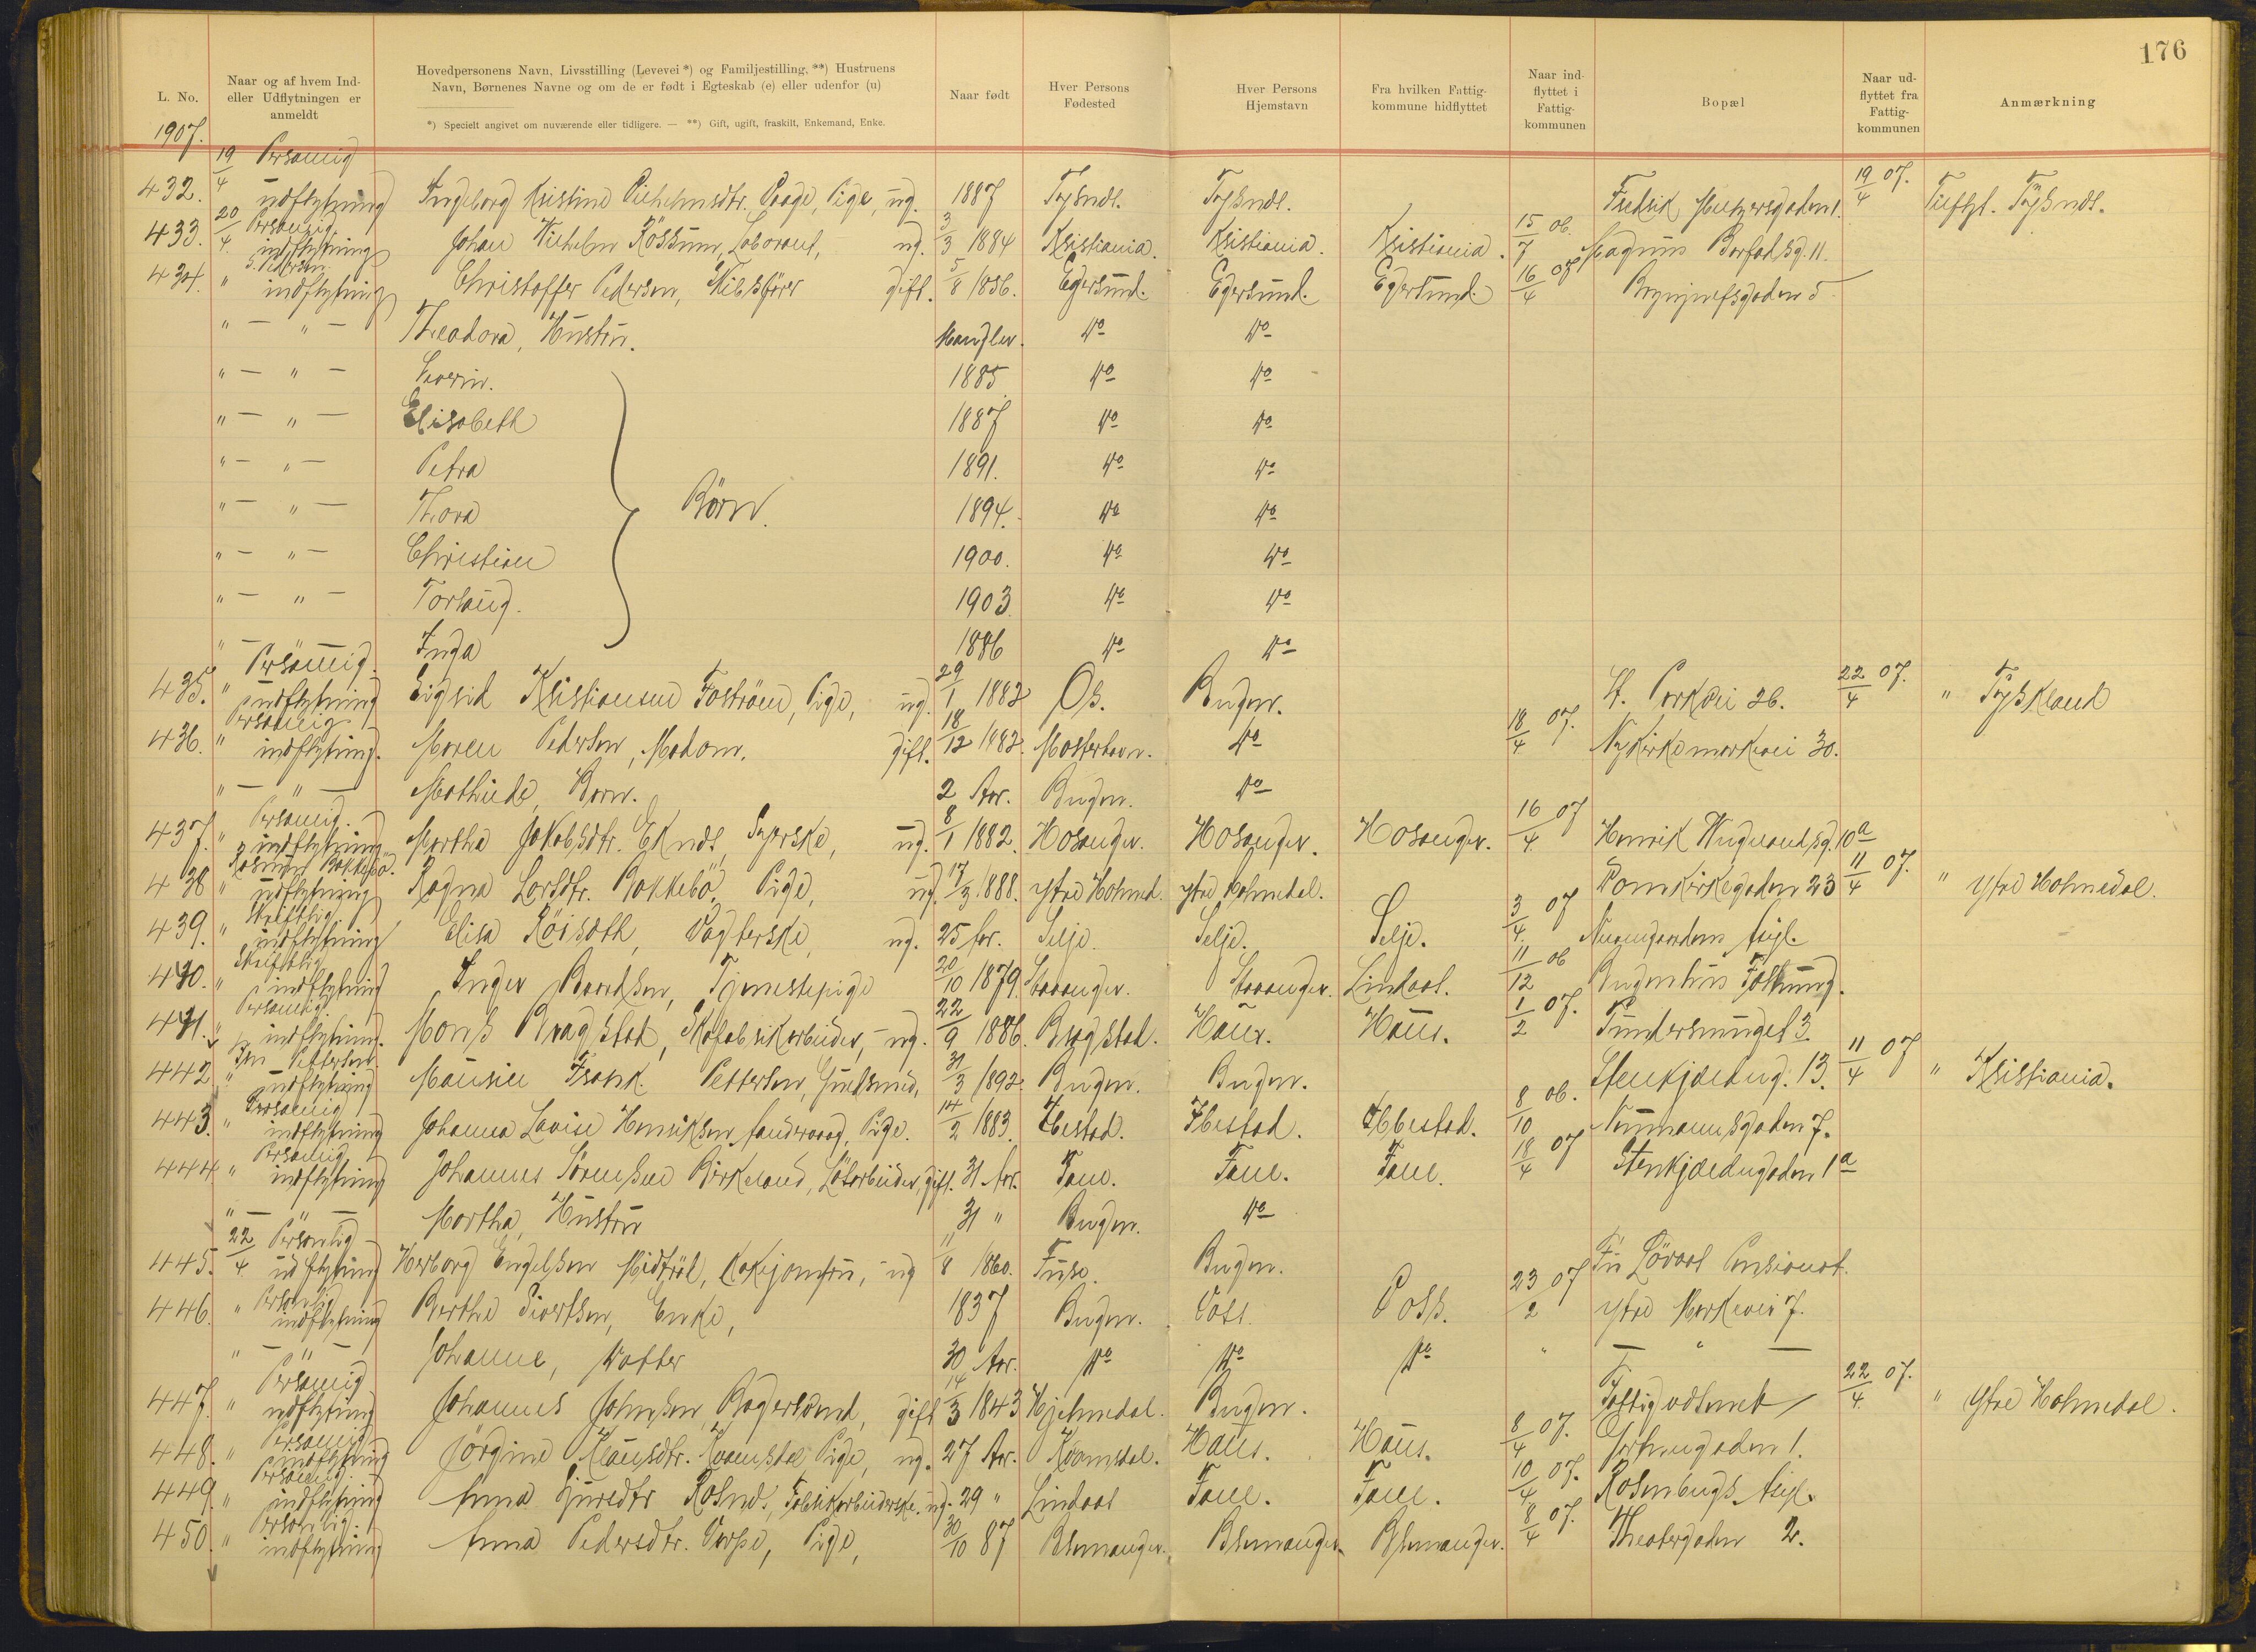 176
L. No.
Naar og af hvem Ind-
eller Udflytningen er
anmeldt
Hovedpersonens Navn, Livsstilling (Levevei *) og Familjestilling, **) Hustruens
Navn, Børnenes Navne og om de er født i Egteskab (e) eller udenfor (u)
*) Specielt angivet om nuværende eller tidligere. — **) Gift, ugift, fraskilt, Enkemand, Enke.
Naar født
Hver Persons
Fødested
Hver Persons
Hjemstavn
Fra hvilken Fattig-
kommune hidflyttet
Naar ind-
flyttet i
Fattig-
kommunen
Bopæl
Naar ud-
flyttet fra
Fattig-
kommunen
Anmærkning
1907.
432. 19/4 Personlig udflytning Ingeborg Kristine Pige, ug. 1887 Tyskndl. Tyskndl. Fredrik Meltzersgaden 1. 19/4 07. Tilflyt. Tyskndl.
433. 20/4. Personlig indflytning Johan Vilhelm Røssum, Laborant, ug. 3/3 1884 Kristiania. Kristiania. Kristiania. 15/7 06. Magnus Barfodsg. 11.
434. " S. Pedersen indflytning Christoffer Pedersen, Skibsfører gift. 5/8 1856. Egersund. Egersund. Egersund. 16/4 07 Brynjulfsgaden 5
" — " — Theodora, Hustru. Mangler. Do Do
" — " — Severin. 1885 Do Do
" — " — Elisabeth 1887 Do Do
" — " — Petra 1891. Do Do
" — " — Thora Børn. 1894. Do Do
" — " — Christian 1900. Do Do
" — " — Torlaug. 1903 Do Do
" — Inga 1886 Do Do
435. " Personlig udflytning Sigrid Kristiansen Pige, ug. 29/1 1882 Os. Bergen. St. Parkvei 26. 22/4 07. " Tyskland
436. " Personlig indflytning. Maren Pedersen, Madam. gift. 18/12 1882. Mosterhavn. Do 18/4 07. Nykirkemarkvei 30.
" — " — Mathilde, Barn. 2 Aar. Bergen. Do
437. " Personlig. indflytning Martha Jakobsdtr. Eknes, Syerske, ug. 8/1 1882. Hosanger. Hosanger. Hosanger. 16/4 07 Henrik Wergelandsg. 10a
438 " Rasmus Bakkebø. udflytning Ragna Larsdtr. Bakkebø, Pige, ug. 17/3 1888. Ytre Holmed. Ytre Holmedal. Domkirkegaden 23 11/4 07. " Ytre Holmedal.
439. " Skriftlig indflytning Elisa Røisæth, Vagterske, ug. 25 Aar. Selje. Selje. Selje. 3/4. 07 Neevengaardens Asyl.
440. " Skriftlig indflytning Inger Baardsen, Tjenestepige 20/10 1879. Stavanger. Stavanger. Lindaas. 11/12 06 Bergenhus Fæstning.
441. " Personlig. indflytning. Mons Bragstad, Skofabrikarbeider, ug. 22/9 1886. Bragstad. Haus. Haus. 1/2 07. 3.
442 " Pettersen. udflytning Mauritz Frank. Pettersen, Guldsmed, 31/3 1892. Bergen. Bergen. Stenkjælderg. 13. 11/4 07 " Kristiania.
443. " Personlig indflytning Johanna Lovise Henriksen Pige. 14/2 1883. Ibestad. Ibestad. Ibestad. 8/10 06. Neumannsgaden 7.
444 " Personlig indflytning Johannes Birkeland, Løsarbeider, gift. 31 Aar. Fane. Fane. Fane. 18/4 07 Stenkjældergaden 1a
" — " — Martha, Hustru 31 " Bergen. Do
445. 22/4 Personlig udflytning Herborg Engelsen Midtrød, Kokejomfru, ug 11/8 1860. Fuse. Bergen. Frk Løvaas Pensionat.
446. " Personlig indflytning Berthe Sivertsen, Enke, 1837 Bergen. Voss. Voss. 23/2 07 Ytre Markevei 7.
" — " — Johanne, Datter 30 Aar. Do Do Do " — " —
447. " Personlig udflytning Johannes Johnsen gift 14/3 1843 Hjelmedal. Bergen. Fattigvæsenet 22/4 07. " Ytre Holmedal.
448. " Personlig indflytning Jørgine Klausdtr. Kvamsdal, Pige, ug. 27 Aar. Kvamsdal. Haus. Haus. 8/4 07. 1.
449. " Personlig. indflytning Anna Fabrikarbeiderske. ug. 29 " Lindaas Fane. Fane. 10/4 07. Rosenbergs Asyl.
450. " Personlig. indflytning Anna Pedersdtr. Varpe, Pige, 30/10 87 Bremanger. Bremanger. Bremanger. 8/4 07. Theatergaden 2.